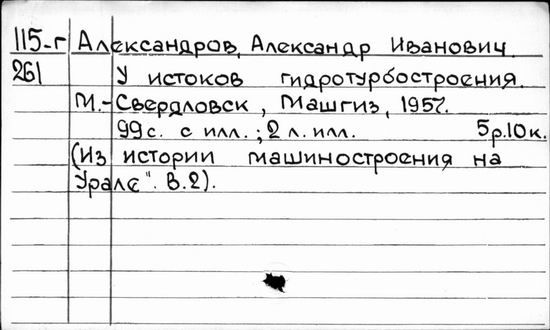 115-г Александров, Александр Иванович.
261 У истоков гидротурбостроения.
М.-Свердловск, Машгиз, 1957.
99 с. с илл.; 2 л. илл. 5р.10к.
(Из истории машиностроения на
Урале". в.2).